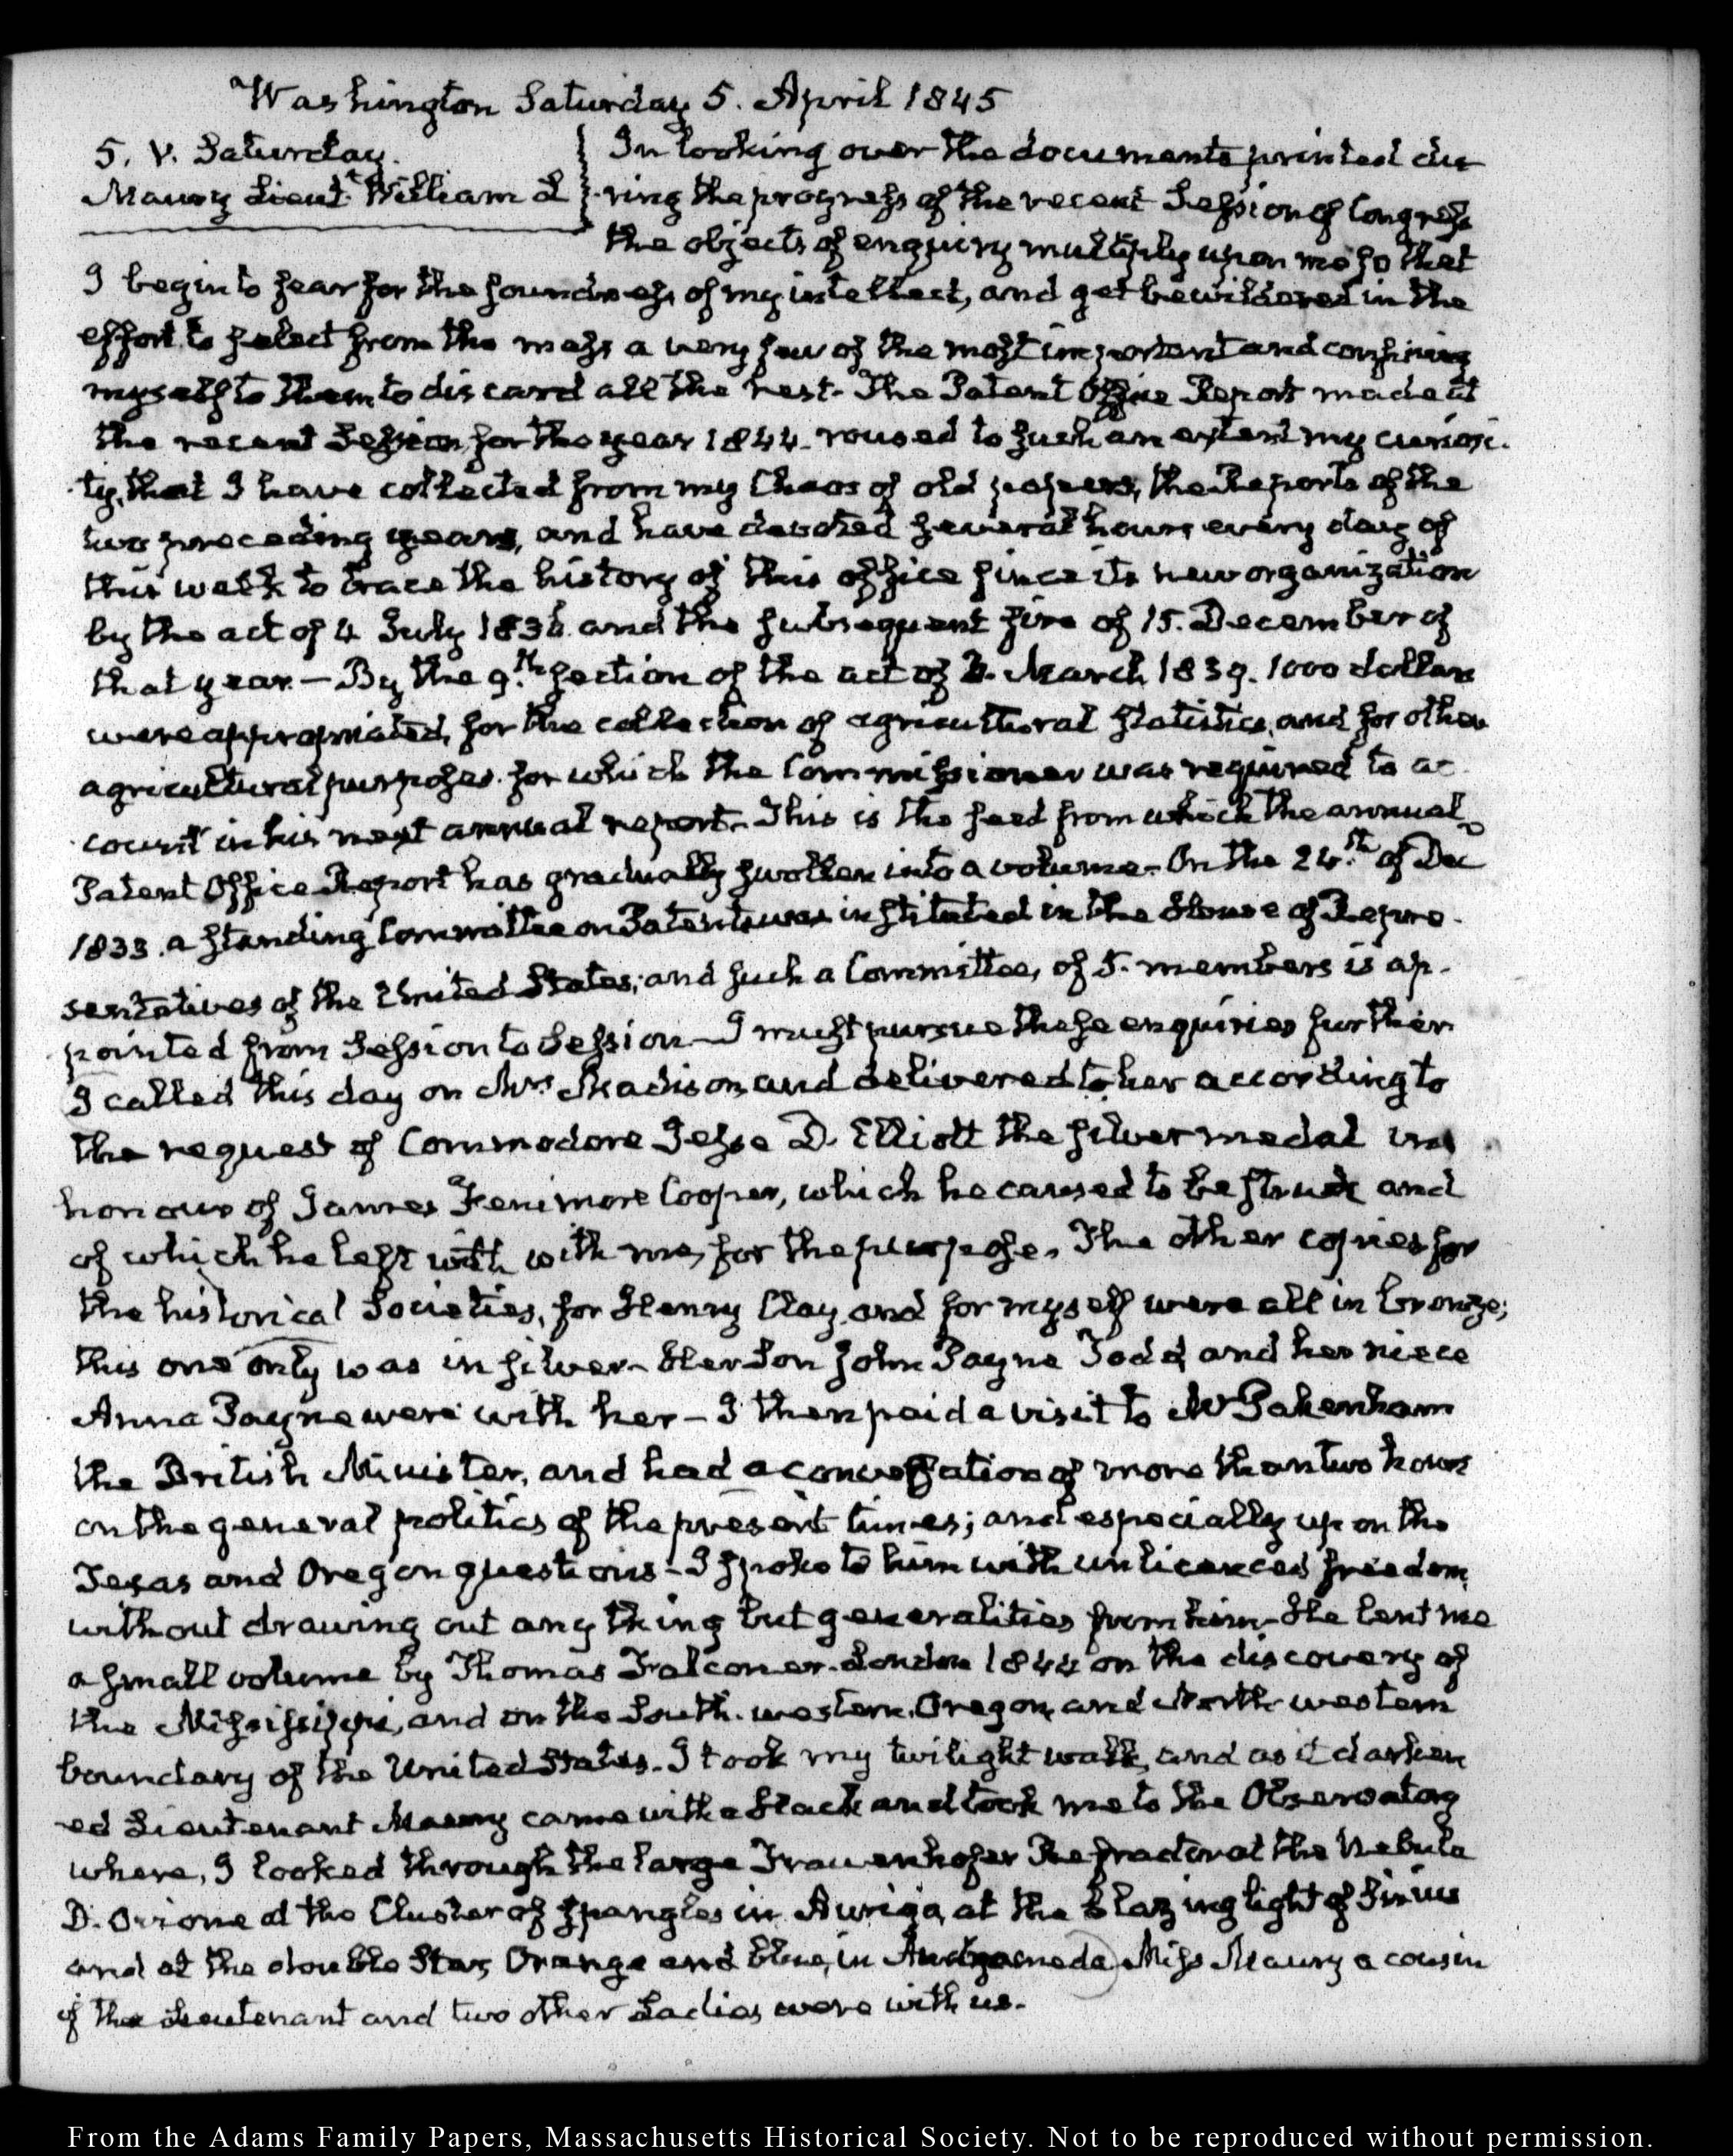 Washington Saturday 5. April 1845
5. V. Saturday.
Maury Lieut.t William L
In looking over the documents printed du
ring the progress of the recent Session of Congress
the objects of enquiry multiply upon me so that
I begin to fear for the soundness of my intellect, and get bewildered in the
effort to select from the mass a very few of the most important and confining
myself to them to discard all the rest. The Patent Office Report made at
the recent Session, for the year 1844. roused to such an extent my curiosi-
ty, that I have collected from my Chaos of old papers, the Reports of the
two preceding years, and have devoted several hours every day of
this week to trace the history of this office since its new organization
by the act of 4 July 1836 and the subsequent fire of 15. December of
that year.— By the 9.th section of the act of 3. March 1839. 1000 dollars
were appropriated, for the collection of agricultural statistics, and for other
agricultural purposes. for which the Commissioner was required to ac
count in his next annual report. This is the seed from which the annual
Patent Office Report has gradually swollen into a volume- On the 24.th of Dec
1833. a standing Committee on Patents was instituted in the House of Repre-
sentatives of the United States; and such a Committee, of 5. members is ap-
pointed from Session to Session— I must pursue these enquiries further
I called this day on Mrs. Madison, and delivered to her according to
the request of Commodore Jesse D. Elliott the silver medal in
honour of James Fenimore Cooper, which he caused to be struck and
of which he left with with me, for the purpose. The other copies for
the historical Societies, for Henry Clay, and for myself were all in bronze;
this one only was in silver- Her Son John Payne Todd and her niece
Anna Payne were with her- I then paid a visit to Mr Pakenham
the British Minister, and had a conversation of more than two hours
on the general politics of the present times; and especially upon the
Texas and Oregon questions- I spoke to him with unlicenced freedom,
without drawing out any thing but generalities from him- He lent me
a small volume by Thomas Falconer. London 1844 on the discovery of
the Mississippi, and on the South-western, Oregon, and North-western
boundary of the United States. I took my twilight walk, and as it darken
ed Lieutenant Maury came with a Hack and took me to the Observatory
where, I looked through the large Frauenhofer Refractor at the Nebula
D. Orione at the Cluster of spangles in Auriga, at the blazing light of Sirius
and at the double Star, Orange and blue, in Andromeda Miss Maury a cousin
of the Lieutenant and two other Ladies were with us.
From the Adams Family Papers, Massachusetts Historical Society. Not to be reproduced without permission.